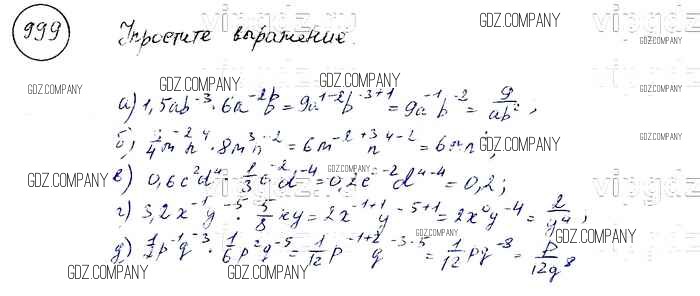 999 Упростите выражение GDZ.COMPANY
GDZ.COMPANY GDZ.COMPANY
GDZ.COMPANY GDZ.COMPANY
а) 1,5ab⁻³ · 6a⁻²b = 9a¹⁻²b⁻³⁺¹ = 9a⁻¹b⁻² = 9/ab²;
б) 3/4 m⁻²n⁴ · 8m³n⁻² = 6m⁻²⁺³n⁴⁻² = 6mn²;
GDZ.COMPANY в) 0,6c²d⁴ · 1/3 c⁻²d⁻⁴ = 0,2c²⁻²d⁴⁻⁴ = 0,2; GDZ.COMPANY
г) 3,2x⁻¹y⁻⁵ · 5/8 xy = 2x⁻¹⁺¹y⁻⁵⁺¹ = 2x⁰y⁻⁴ = 2/y⁴;
GDZ.COMPANY
д) 1/2 p⁻¹q⁻³ · 1/6 p²q⁻⁵ = 1/12 p⁻¹⁺²q⁻³⁻⁵ = 1/12 pq⁻⁸ = p/12q⁸
GDZ.COMPANY GDZ.COMPANY